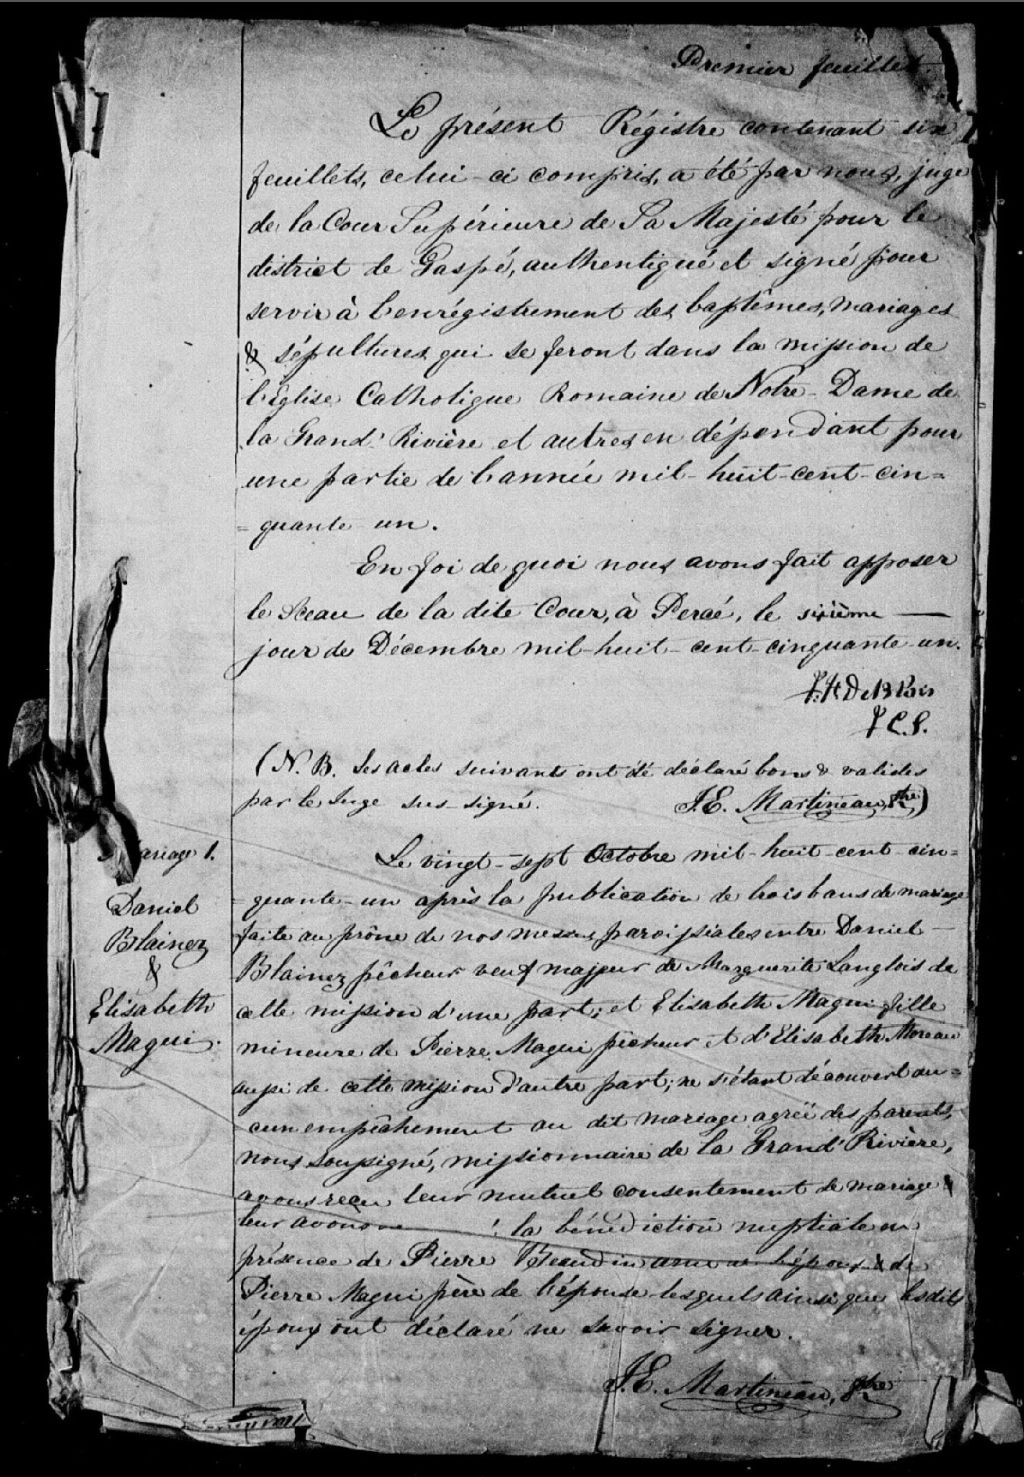 Premier feuillet.
Le présent Régistre contenant six
feuillets, celui-ci compris, a été par nous, juge
de la Cour Supérieure de Sa Majesté pour le
district de Gaspé, authentiqué et signé pour
servir à l'enrégistrement des baptêmes, mariages
& sépultures qui se feront dans la mission de
l'Eglise Catholique Romaine de Notre-Dame de
la Grand'Rivière et autres en dépendant pour
une partie de l'année mil-huit-cent-cin=
=quante un.
En foi de quoi nous avons fait apposer
le Sceau de la dite Cour, à Percé, le sixième
jour de Décembre mil-huit-cent-cinquante-un.
J. C. S.
(N.B. Les actes suivants ont été déclaré bons & valides
par le Juge sus-signé. J.E. Martineau, Ptre)
Mariage 1.
Daniel
Blainez
&
Elisabeth
Magui.
Le vingt-sept Octobre mil-huit-cent-cin=
=quante-un après la publication de trois bans de mariage
faite au prône de nos messes paroissiales entre Daniel
Blainez pêcheur veuf majeur de Marguerite Langlois de
cette mission d'une part; et Elisabeth Magui fille
mineure de Pierre Magui pêcheur et d'Elisabeth Moreau
aussi de cette mission d'autre part; ne s'étant découvert au=
cun empêchement au dit mariage agréé des parents,
nous soussigné, missionnaire de la Grand'Rivière,
avons reçu leur mutuel consentement de mariage &
leur avons la bénédiction nuptiale en
présence de Pierre Beaudin ami de l'époux & de
Pierre Magui père de l'épouse lesquels ainsi que les dits
époux ont déclaré ne savoir signer.
J.E. Martineau, Ptre